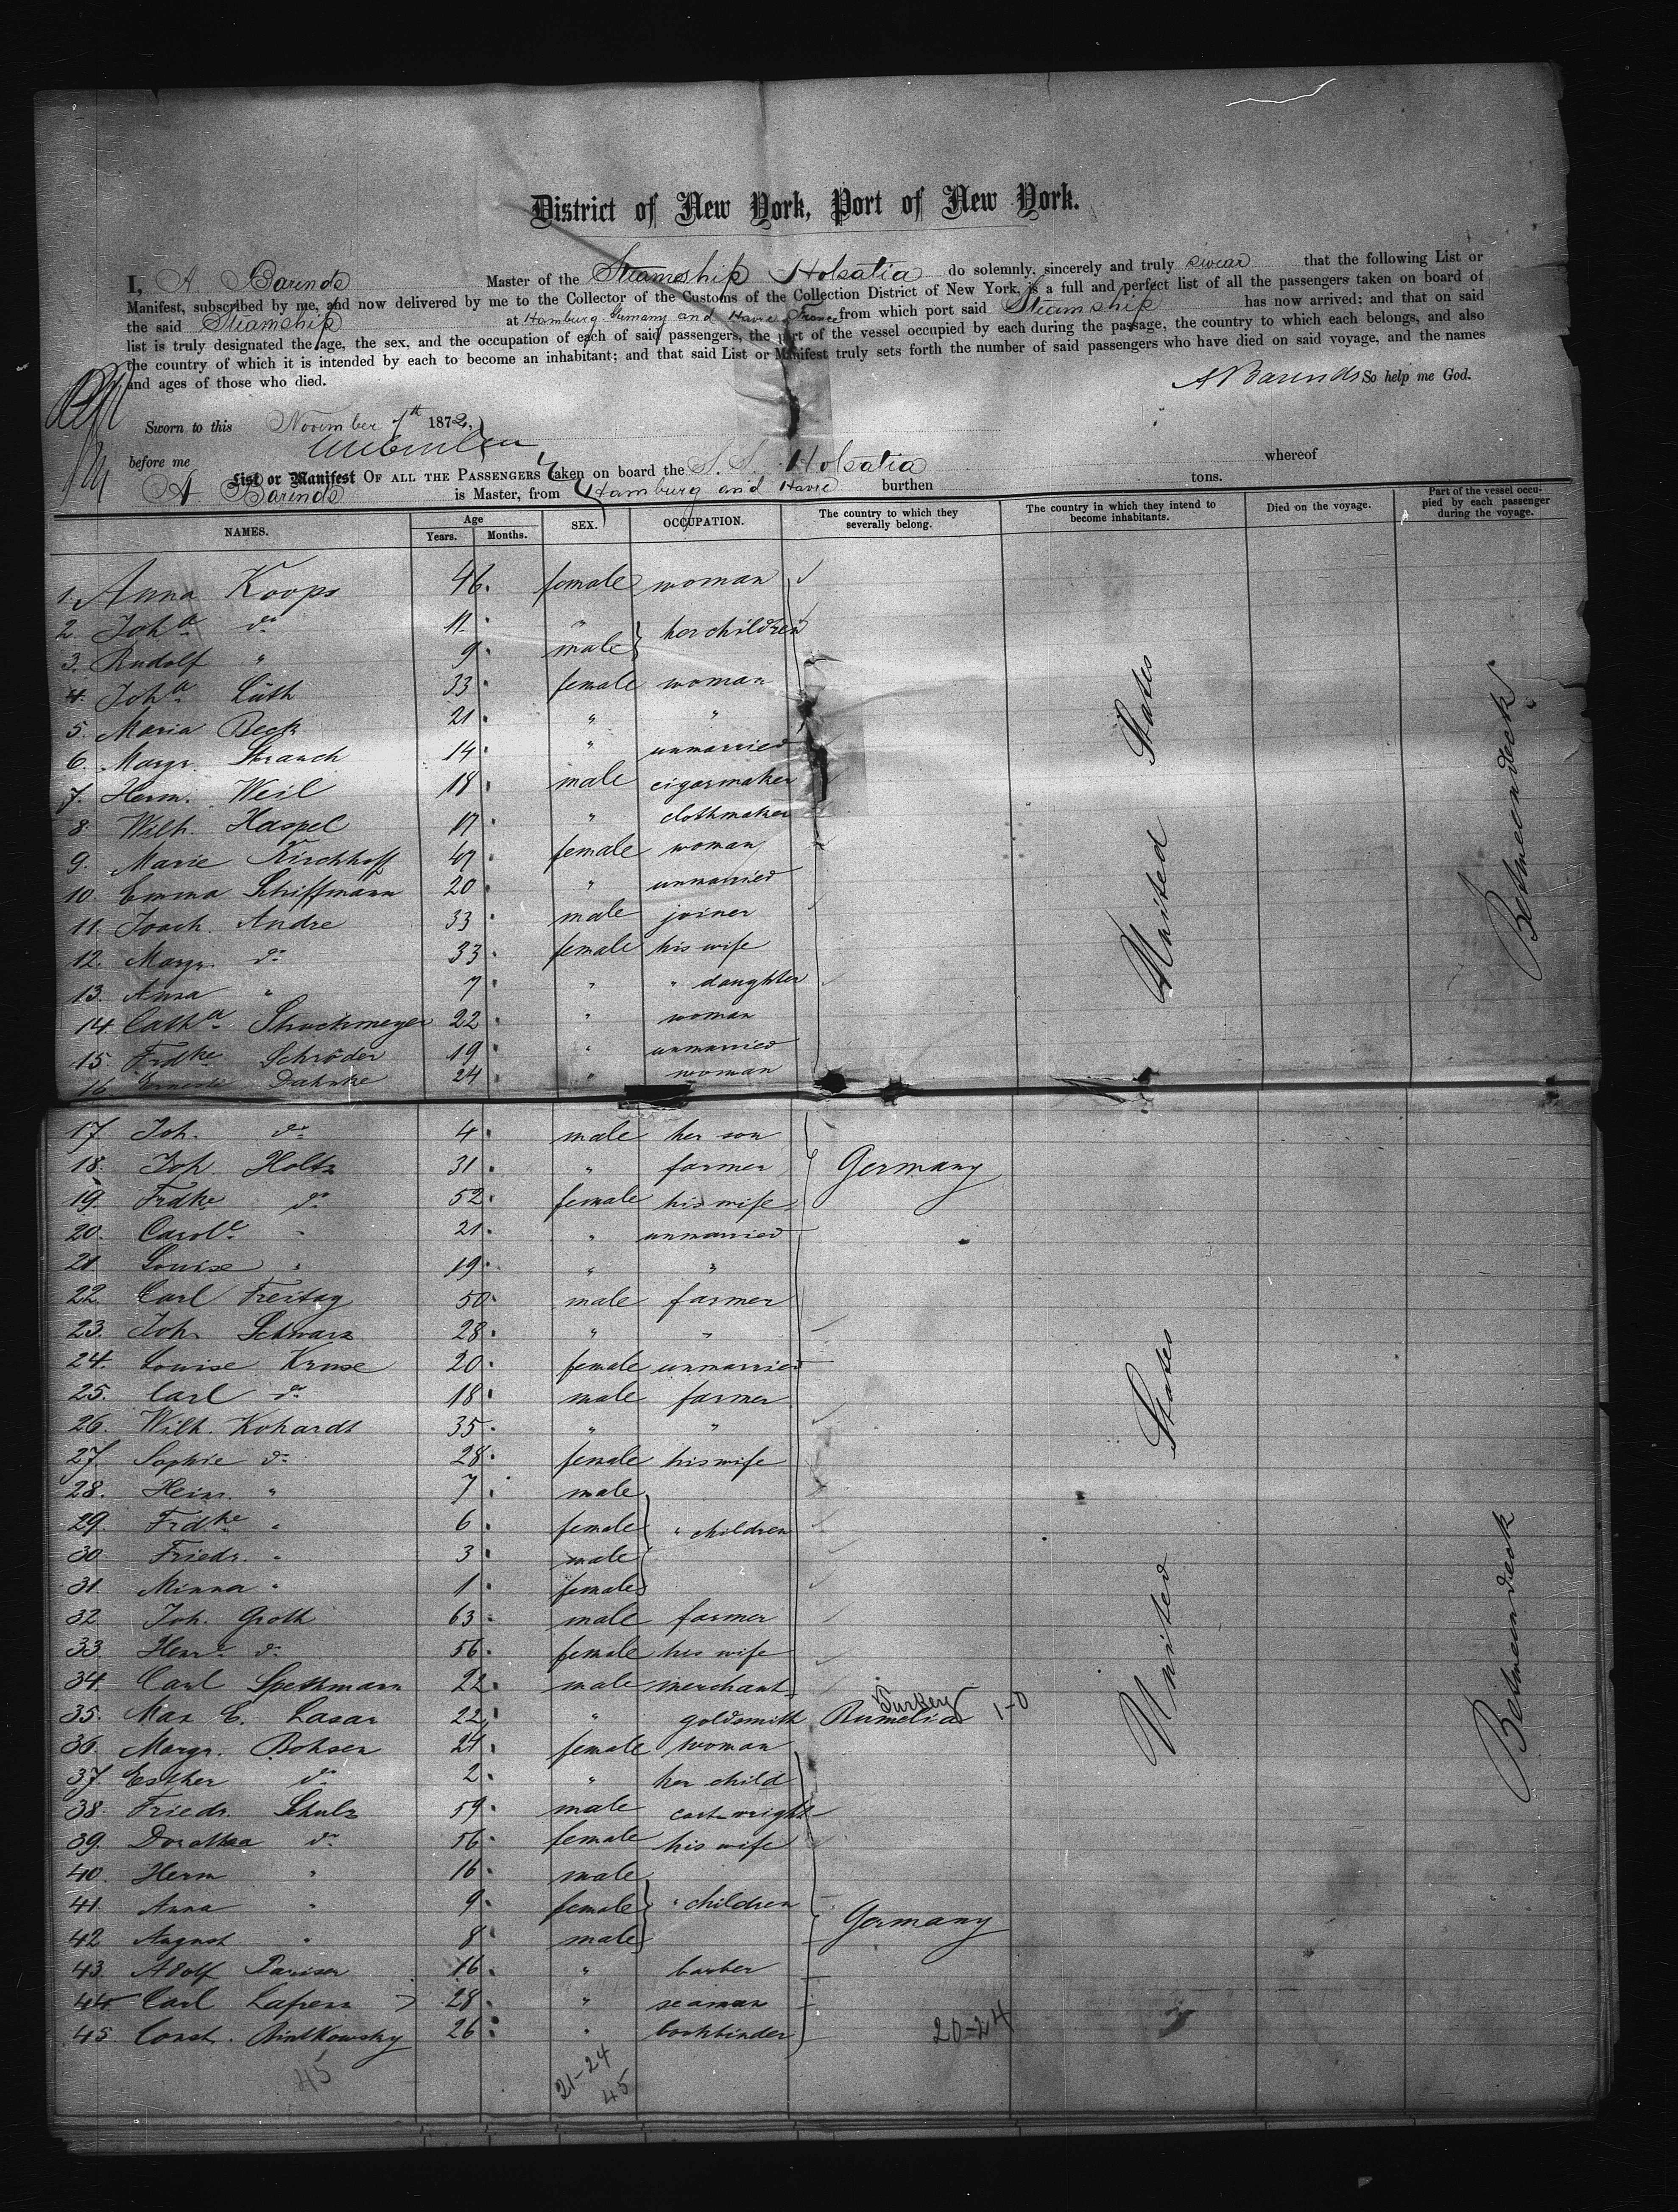 District of New York, Port of New York.
I, A. Barends Master of the Steamship Holsatia do solemnly, sincerely and truly swear that the following List or
Manifest, subscribed by me, and now delivered by me to the Collector of the Customs of the Collection District of New York, is a full and perfect list of all the passengers taken on board of
the said Steamship at Hamburg Germany and Havre France from which port said Steamship has now arrived; and that on said
list is truly designated the age, the sex, and the occupation of each of said passengers, the part of the vessel occupied by each during the passage, the country to which each belongs, and also
the country of which it is intended by each to become an inhabitant; and that said List or Manifest truly sets forth the number of said passengers who have died on said voyage, and the names
and ages of those who died.
A Barends So help me God.
Sworn to this November 7th 1872.
before me
List or Manifest OF ALL THE PASSENGERS taken on board the S. S. Holsatia whereof
A Barends is Master, from Hamburg and Havre burthen tons.
NAMES. Age Years. Months. SEX. OCCUPATION. The country to which they severally belong. The country in which they intend to become inhabitants. Died on the voyage. Part of the vessel occupied by each passenger during the voyage.
1. Anna Koops 46. female woman
2. Joha do 11. " her children
3. Rudolf " 9. male
4. Joha Lüth 33 female woman
5. Maria Beck 21 " "
6. Margr. Strauch 14 " unmarried
7. Herm. Weil 18 male cigarmaker
8. Wilh. Haspel 17 " clothmaker
9. Marie Kirchhoff 47 female woman
10. Emma Schiffmann 20 " unmarried
11. Joach. Andre 33 male joiner
12. Margr. do 33 female his wife
13. Anna " 7 " " daughter
14. Catha Struckmeyer 22 " woman
15. Frdke Schröder 19 " unmarried
16. Dahnke 24 " woman
17. Joh. do 4 male her son
18. Joh Holtz 31 " farmer Germany
19. Frdke do 52 female his wife
20. Carole " 21 " unmarried
21 Louise " 19 " "
22. Carl Freitag 50 male farmer
23. Joh. Schwarz 28 " "
24. Louise Kruse 20 female unmarried
25. Carl do 18 male farmer
26. Wilh. Kohardt 35 " "
27. Sophie do 28 female his wife
28. Heinr. " 7 male
29. Frdke " 6 female " children
30. Friedr. " 3 male
31. Minna " 1 female
32 Joh. Groth 63 male farmer
33. Henre do 56 female his wife
34. Carl Spethmann 22 male merchant
35. Max E. Lasar 22 " goldsmith Rumelia Turkey 1-0
36. Margr. Bohsen 24 female woman
37. Esther do 2 " her child
38. Friedr. Schulz 59 male cartwright
39. Dorothea do 56 female his wife
40. Herm " 16 male
41. Anna " 9 female " children
42 August " 8 male Germany
43. Adolf Pariser 16 " barber
44 Carl Lafrenz 28 " seaman
45. Const. Bintkowsky 26 " bookbinder 20-24
45 21-24
45
United States
United States
Betweendeck
Betweendeck